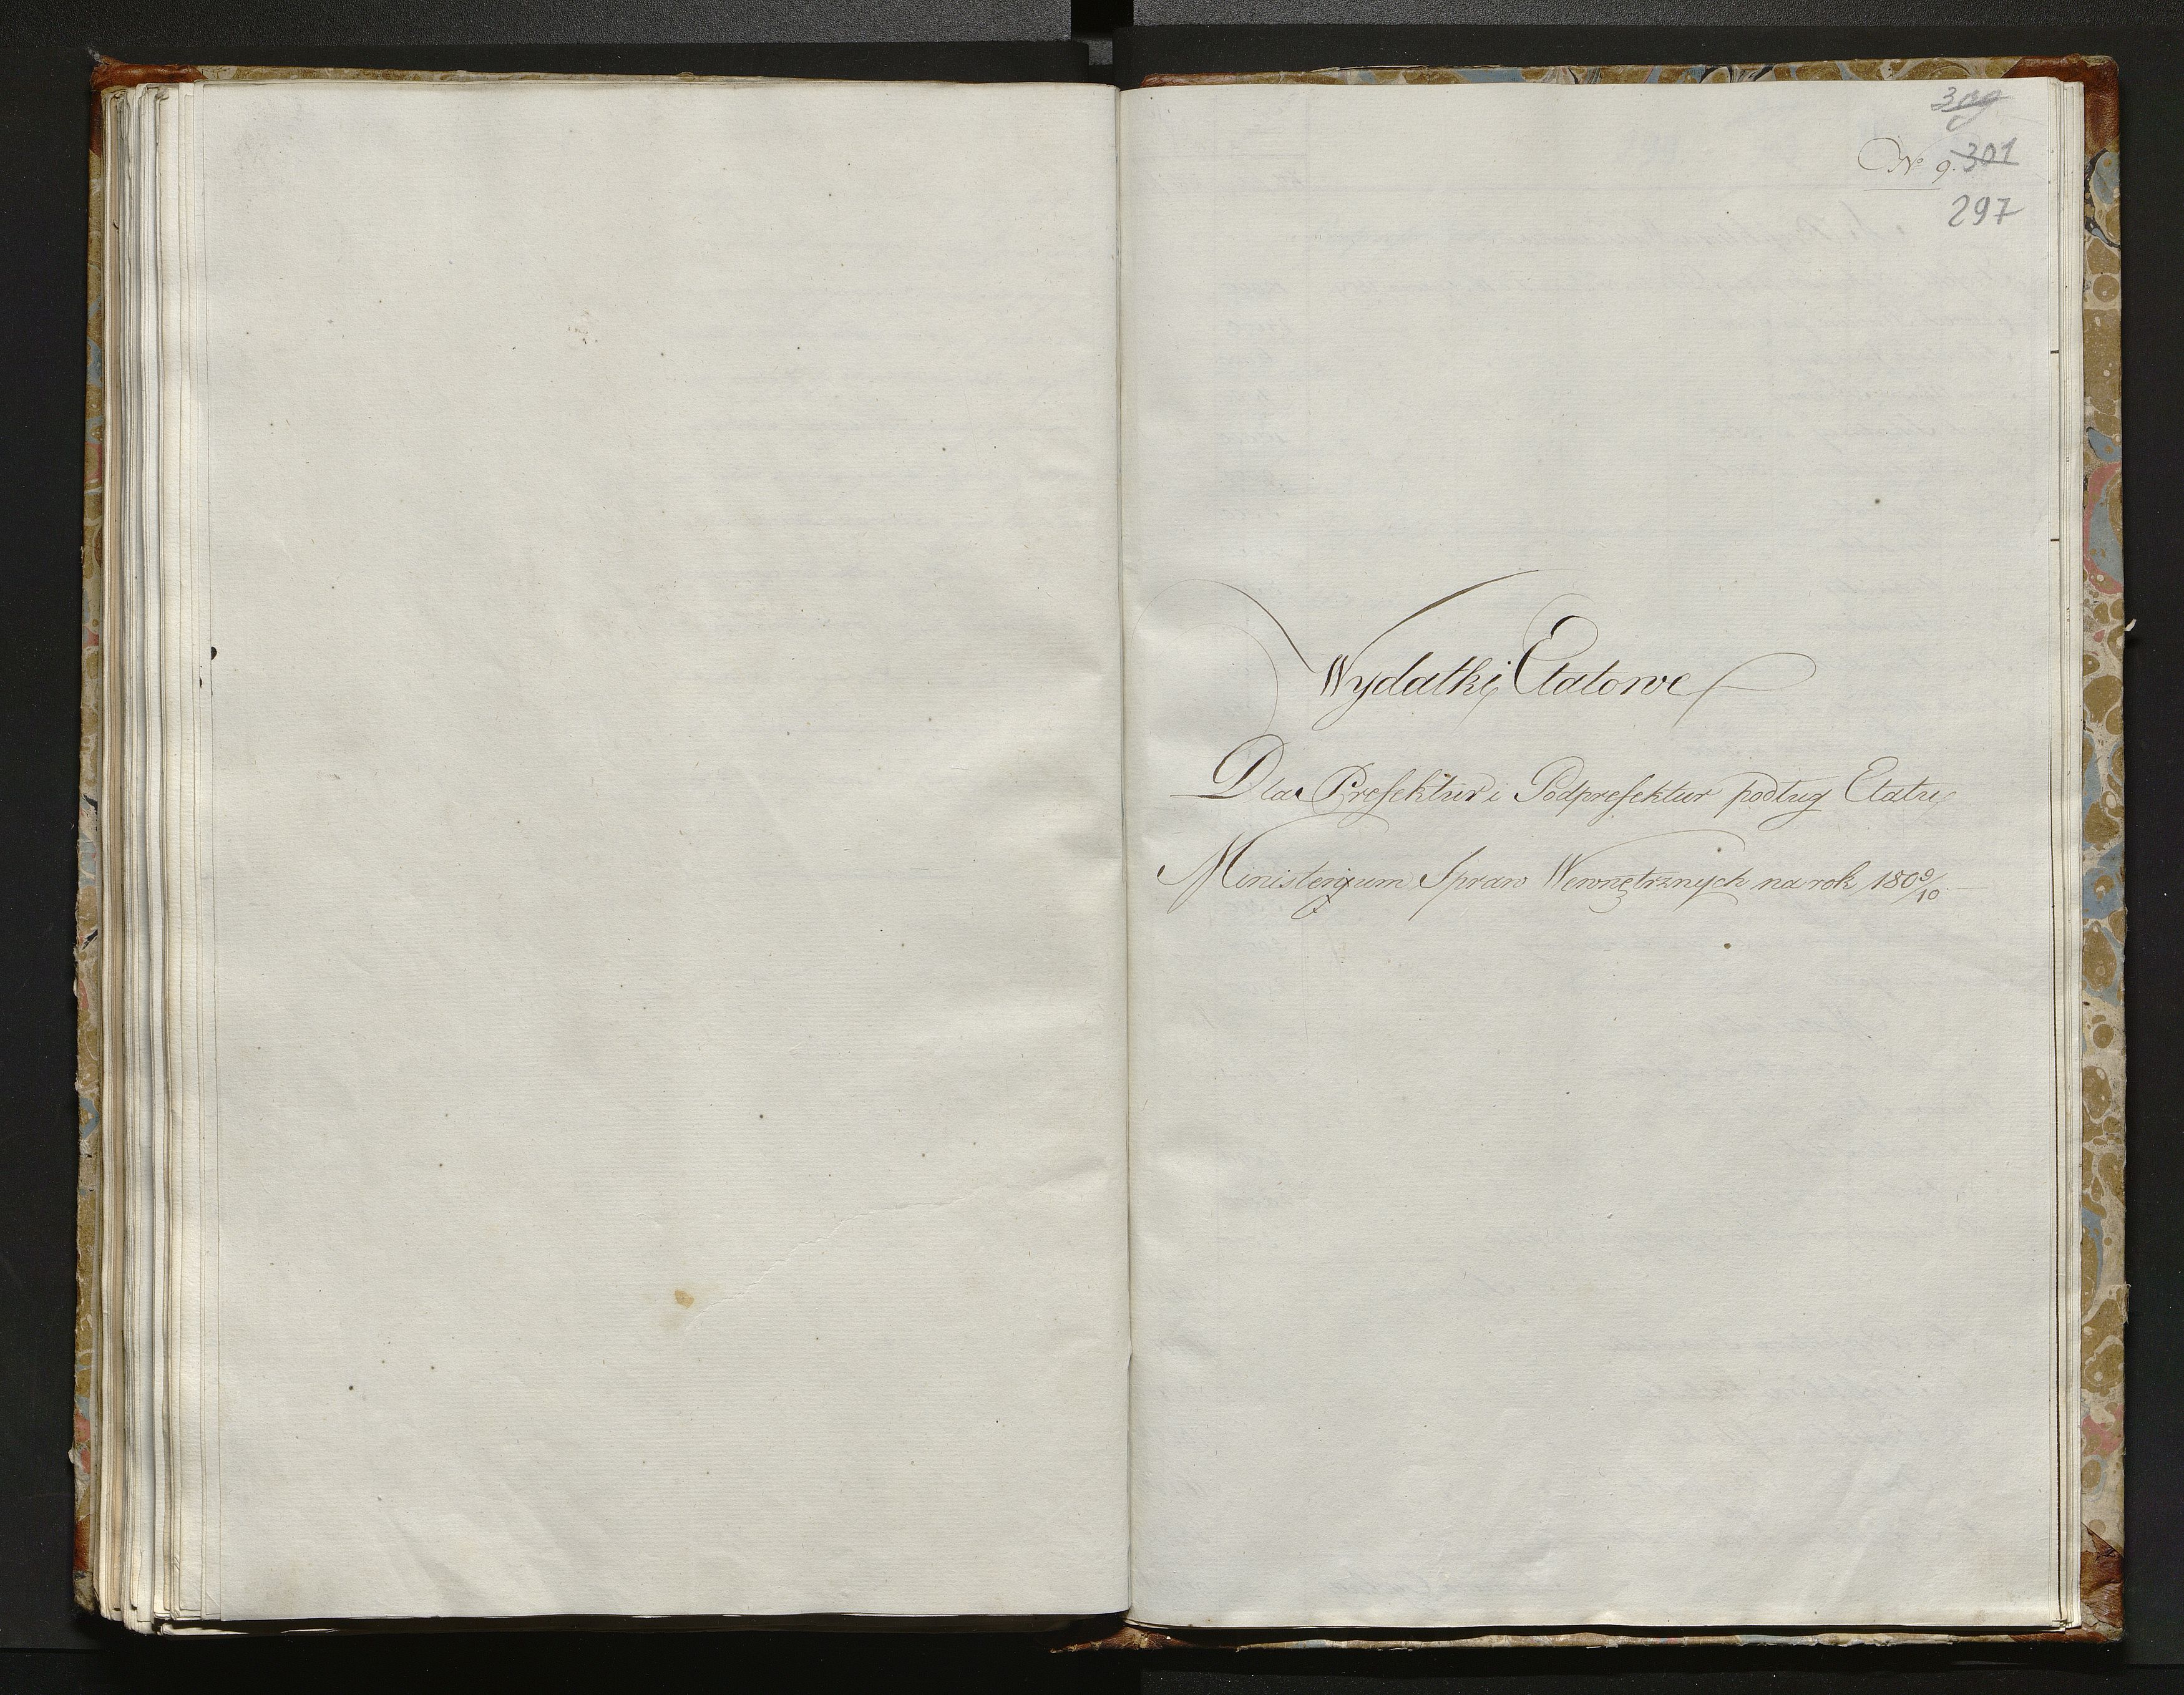 309
No 9. 301
297
Wydatki Etatowe
Dla Prefektur i Podprefektur podług Etatu
Ministeryum Spraw Wewnętrznych na rok 1809/10